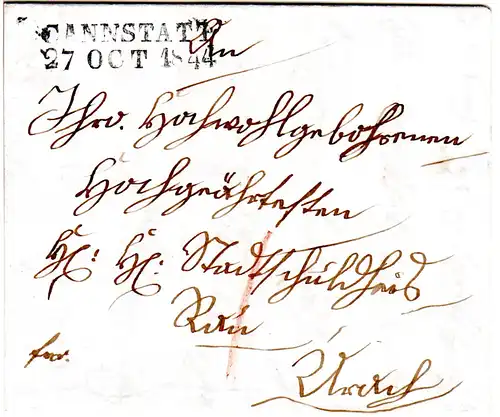 CANNSTATT
27 OCT 1844
An
Ihro. Hochwohlgebohrenen
Hochgeährtesten
H: H: Stadtschuldheis
Rau
Urach
frco.